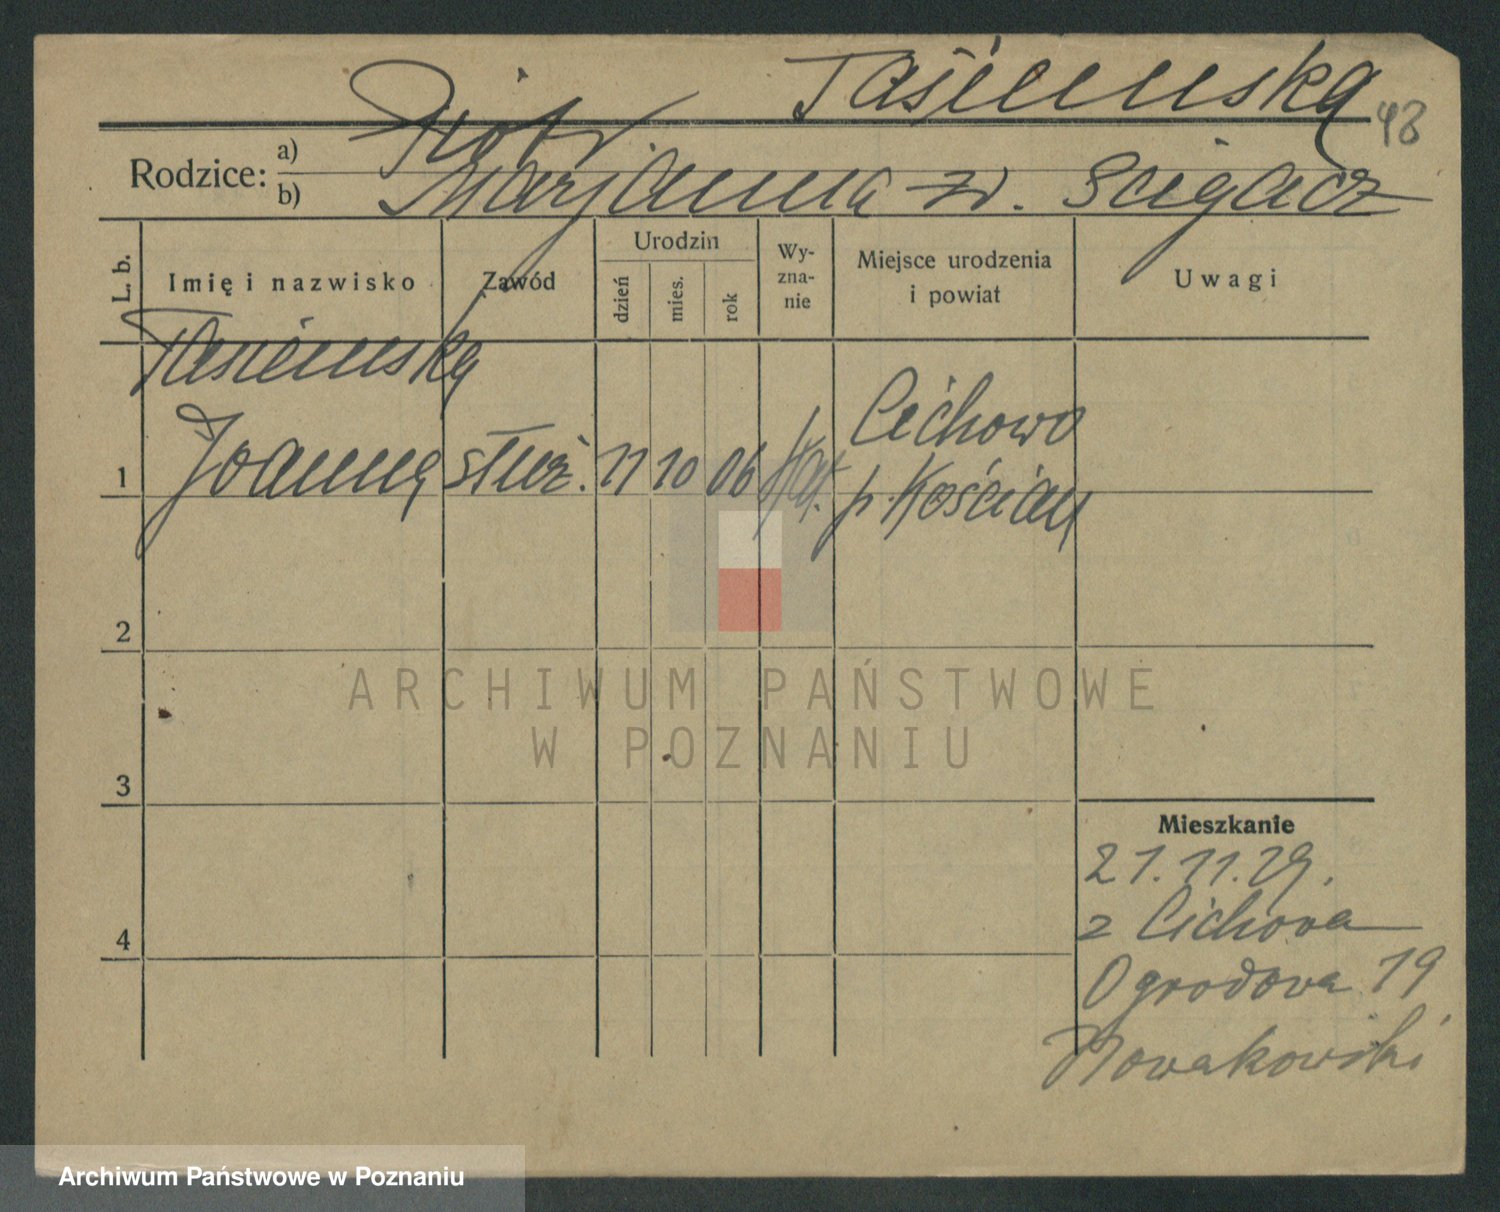 Tasiemska
48
Rodzice: a) Piotr
b) Marjanna zd. Ścigacz
L. b.
Imię i nazwisko
Zawód
Urodzin
dzień
mies.
rok
Wy-
zna-
nie
Miejsce urodzenia
i powiat
Uwagi
Tasiemska
1 Joanna służ. 11 10 06 kat. Cichowo
p. Kościan
2
3
4
Mieszkanie
21.11.29.
z Cichowa
Ogrodowa 19
Nowakowski
ARCHIWUM PAŃSTWOWE
W POZNANIU
Archiwum Państwowe w Poznaniu